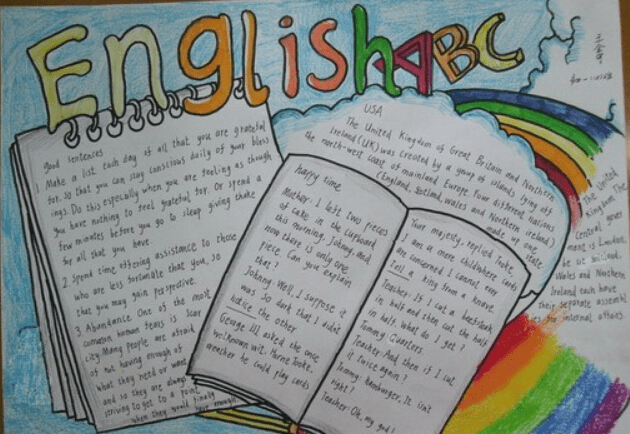 English ABC
good sentences
1 Make a list each day of all that you are grateful
for. So that you can stay conscious daily of your bless
ings. Do this especially when you are feeling as though
you have nothing to feel grateful for. Or spend a
few minutes before you go to sleep giving thake
for all that you have.
2 Spend time offering assistance to those
who are less fortunate that you, so
that you may gain perspective.
3 Abundance One of the most
common human fears is scar
city Many people are afraid
of not having enough of
what they need or want
and so they are always
striving to get to a point
when they would finally
have enough
happy time
Mother: I left two pieces
of cake in the cupboard
this morning, Johnny, and
now there is only one
piece. Can you explain
that?
Johnny: Well, I suppose it
was so dark that I didn't
notice the other
George III, asked the once
well known wit,
weather he could play cards
Your majesty, replied Tooke,
I am a mere child where cards
are concerned I cannot even
tell a king from a knave
Teacher: If I cut a beefsteak
in half and then cut the half
in half, what do I get?
Tommy: Quarters.
Teacher: And then if I cut
it twice again?
Tommy: Hamburger. It isn't
right?
Teacher: Oh, my god!
USA
The United Kingdom of Great Britain and Northern
Ireland (UK) was created by a group of islands lying off
the north-west coast of mainland Europe Four different nations
(England, Scotland, wales and Northern ireland)
made up one
state
The United
Kingdom The
Central gover
ment is London,
Wales and Northern
Ireland each have
their separate assembl
ies for internal affairs.